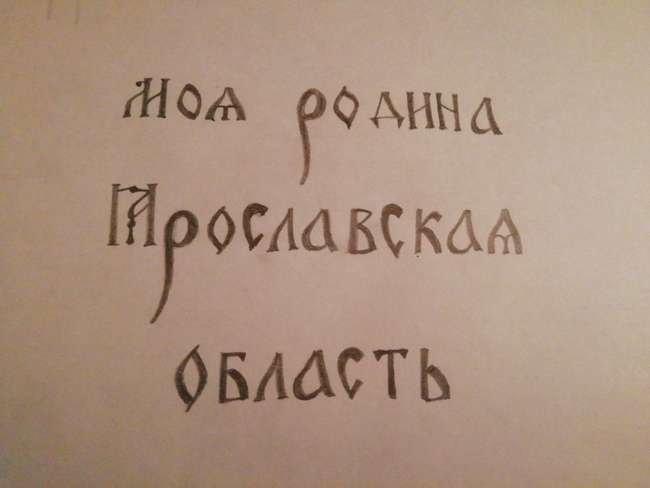 моѧ родина
Ꙗрославскаѧ
область